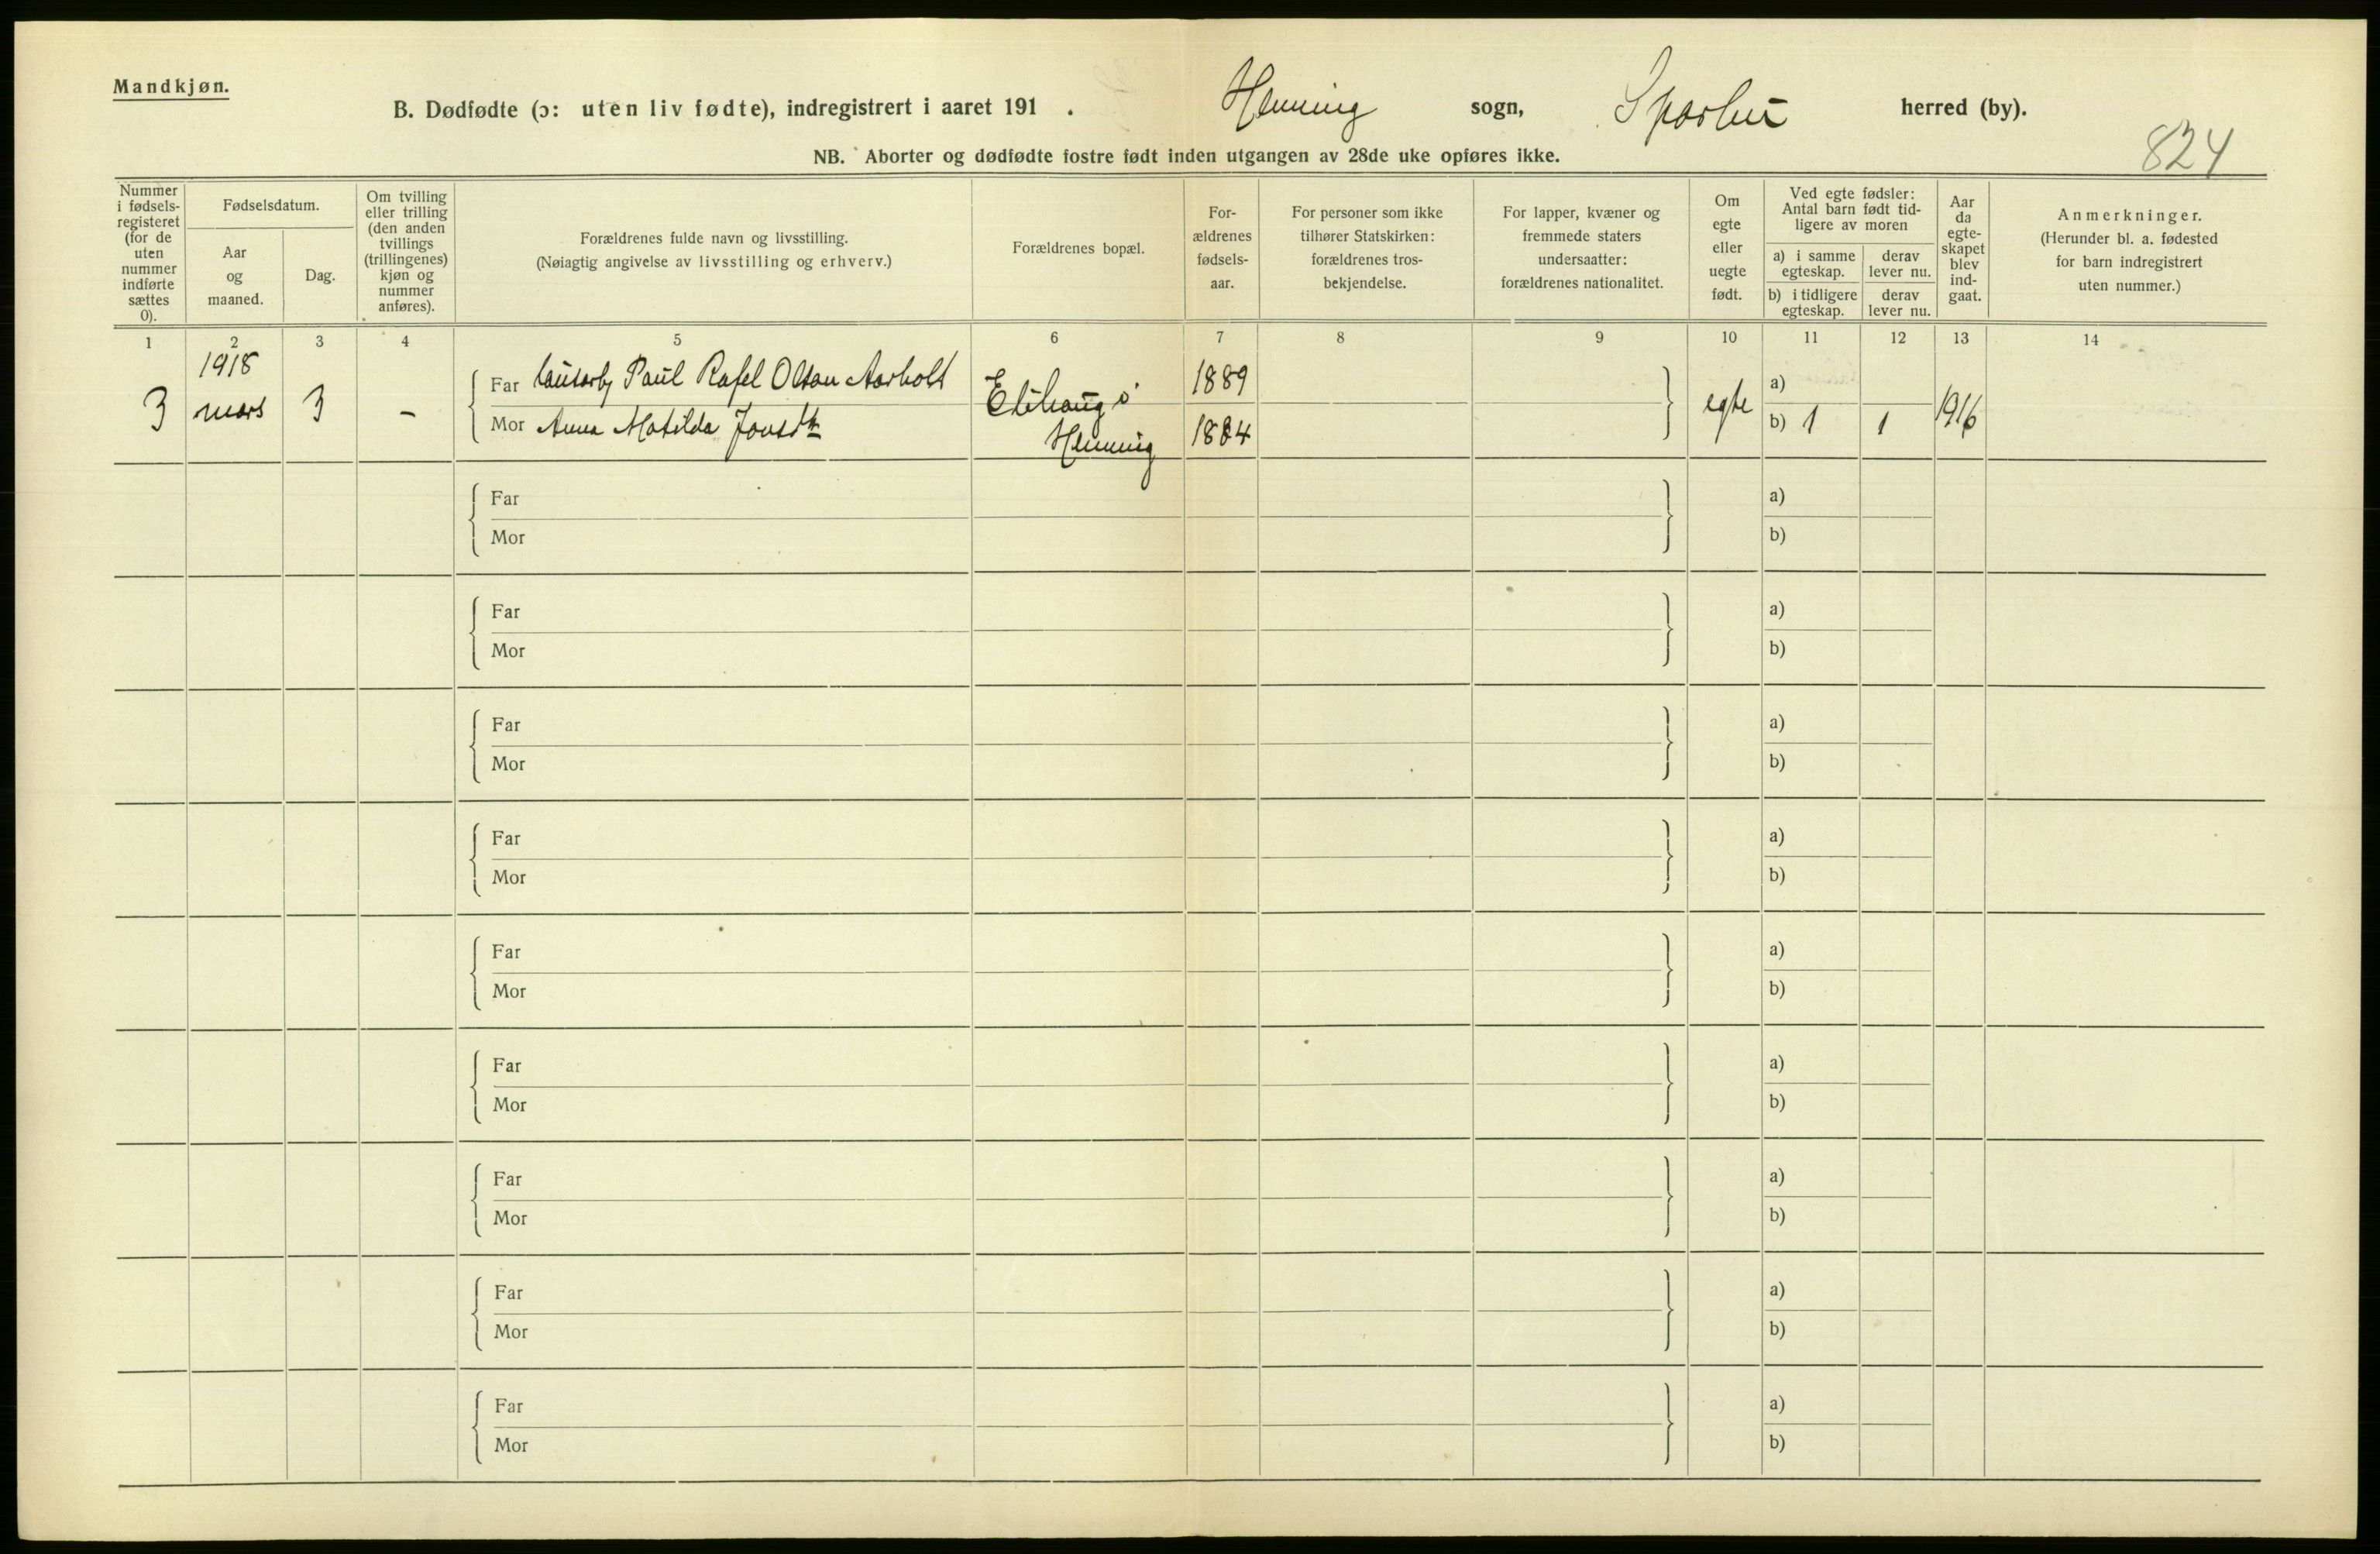 Mandkjøn.
B. Dødfødte (ɔ: uten liv fødte), indregistrert i aaret 191 . Henning sogn, Sparbu herred (by).
824
NB. Aborter og dødfødte fostre født inden utgangen av 28de uke opføres ikke.
Nummer
i fødsels-
registeret
(for de
uten
nummer
indførte
sættes
0).
Fødselsdatum.
Aar
og
maaned.
Dag.
Om tvilling
eller trilling
(den anden
tvillings
(trillingenes)
kjøn og
nummer
anføres).
Forældrenes fulde navn og livsstilling.
(Nøiagtig angivelse av livsstilling og erhverv.)
Forældrenes bopæl.
For-
ældrenes
fødsels-
aar.
For personer som ikke
tilhører Statskirken:
forældrenes tros-
bekjendelse.
For lapper, kvæner og
fremmede staters
undersaatter:
forældrenes nationalitet.
Om
egte
eller
uegte
født.
Ved egte fødsler:
Antal barn født tid-
ligere av moren
a) i samme
egteskap.
derav
lever nu.
b) i tidligere
egteskap.
derav
lever nu.
Aar
da
egte-
skapet
blev
ind-
gaat.
Anmerkninger.
(Herunder bl. a. fødested
for barn indregistrert
uten nummer.)
1 2 3 4 5 6 7 8 9 10 11 12 13 14
1918
3 mars 3 –
Far Paul Rafel Olsen Aarholt 1889
Mor Anna Matilda Jonsdtr 1884
Henning
egte
a)
b) 1 1
1916
Far a)
Mor b)
Far a)
Mor b)
Far a)
Mor b)
Far a)
Mor b)
Far a)
Mor b)
Far a)
Mor b)
Far a)
Mor b)
Far a)
Mor b)
Far a)
Mor b)